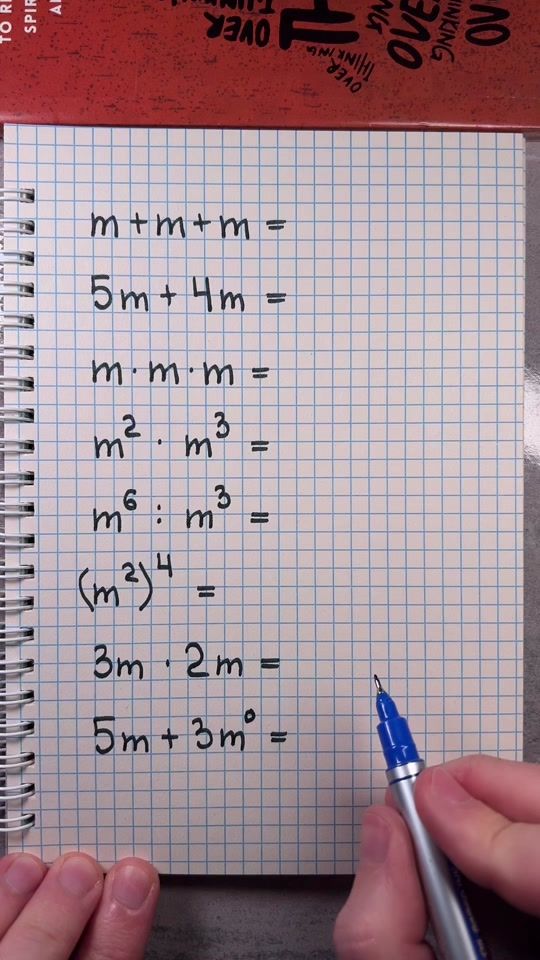 TO RI
SPIR
AI
OVER
THINKING
OVER
THINKING
OVE
NO
m + m + m =
5m + 4m =
m · m · m =
m² · m³ =
m⁶ : m³ =
(m²)⁴ =
3m · 2m =
5m + 3m⁰ =